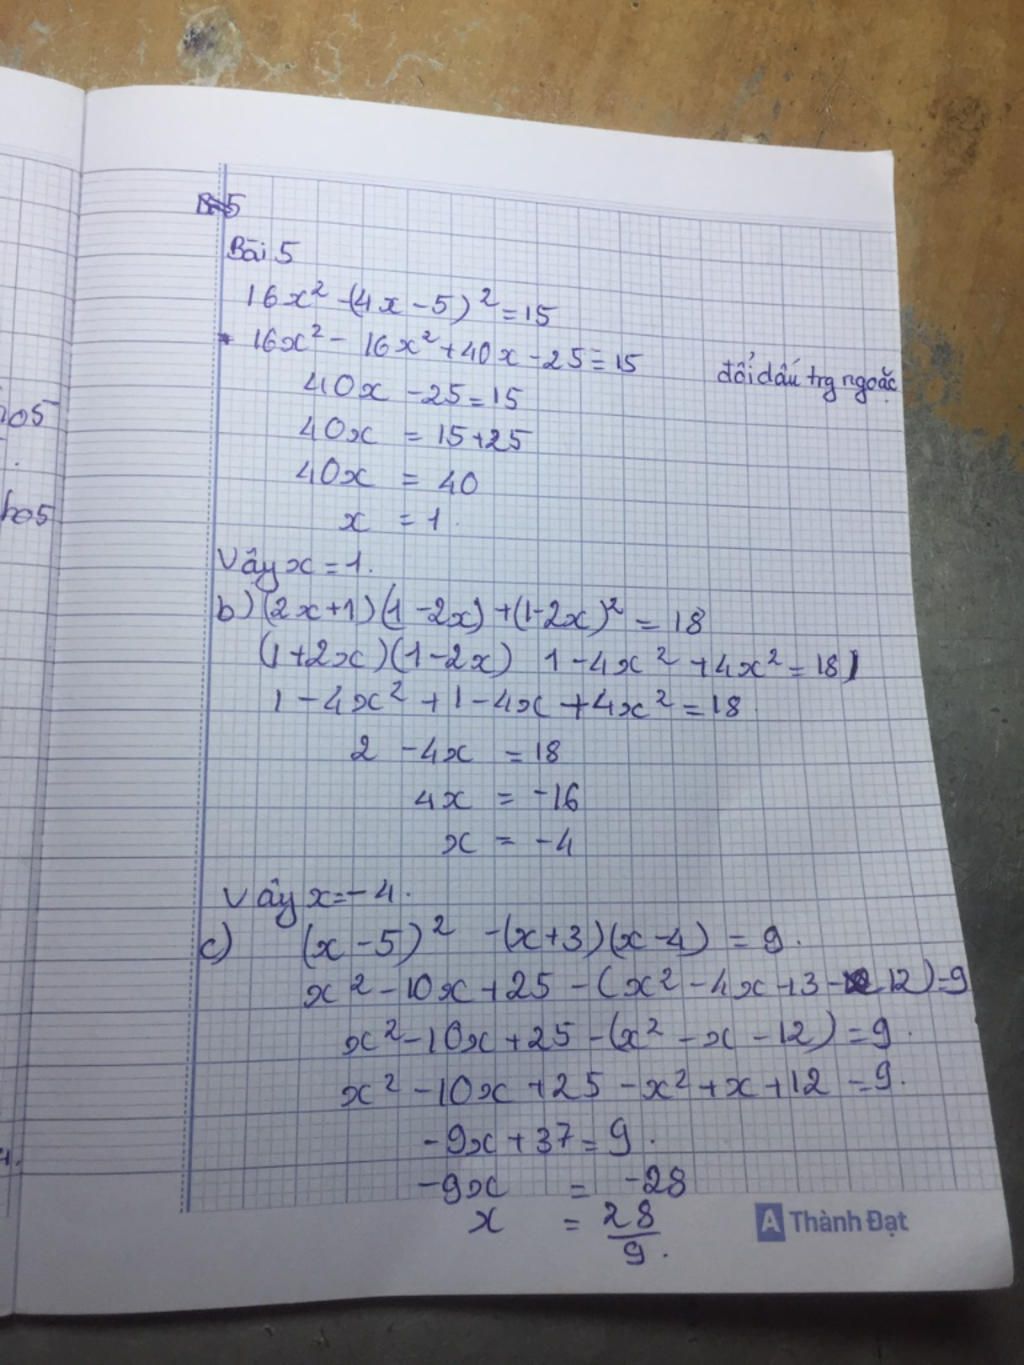 Bài 5
16x² -(4x-5)² = 15
16x² - 16x² + 40x - 25 = 15
đổi dấu trg ngoặc
40x - 25 = 15
40x = 15 + 25
40x = 40
x = 1.
Vây x = 1.
b) (2x+1)(1-2x) + (1-2x)² = 18
(1+2x)(1-2x) 1 - 4x² + 4x² = 18
1 - 4x² + 1 - 4x + 4x² = 18
2 - 4x = 18
4x = -16
x = -4
Vây x = -4.
c) (x-5)² - (x+3)(x-4) = 9.
x² - 10x + 25 - (x² - 4x + 3 - 12) = 9
x² - 10x + 25 - (x² - x - 12) = 9.
x² - 10x + 25 - x² + x + 12 = 9.
-9x + 37 = 9.
-9x = -28
x = 28/9.
A Thành Đạt
ho5